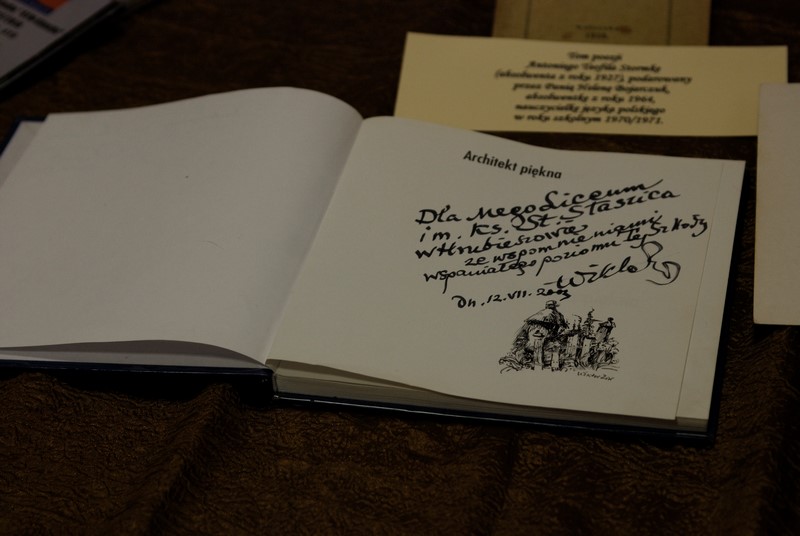 Tom poezji
Antoniego Teofila
(absolwenta z roku 1927), podarowany
przez Panią Helenę Bojarczuk,
absolwentkę z roku 1964,
nauczycielkę języka polskiego
w roku szkolnym 1970/1971.
Architekt piękna
Dla Mego Liceum
im. Ks. St. Staszica
w Hrubieszowie
ze wspomnieniami
wspaniałego poziomu tej szkoły
Dn. 12.VII.2003